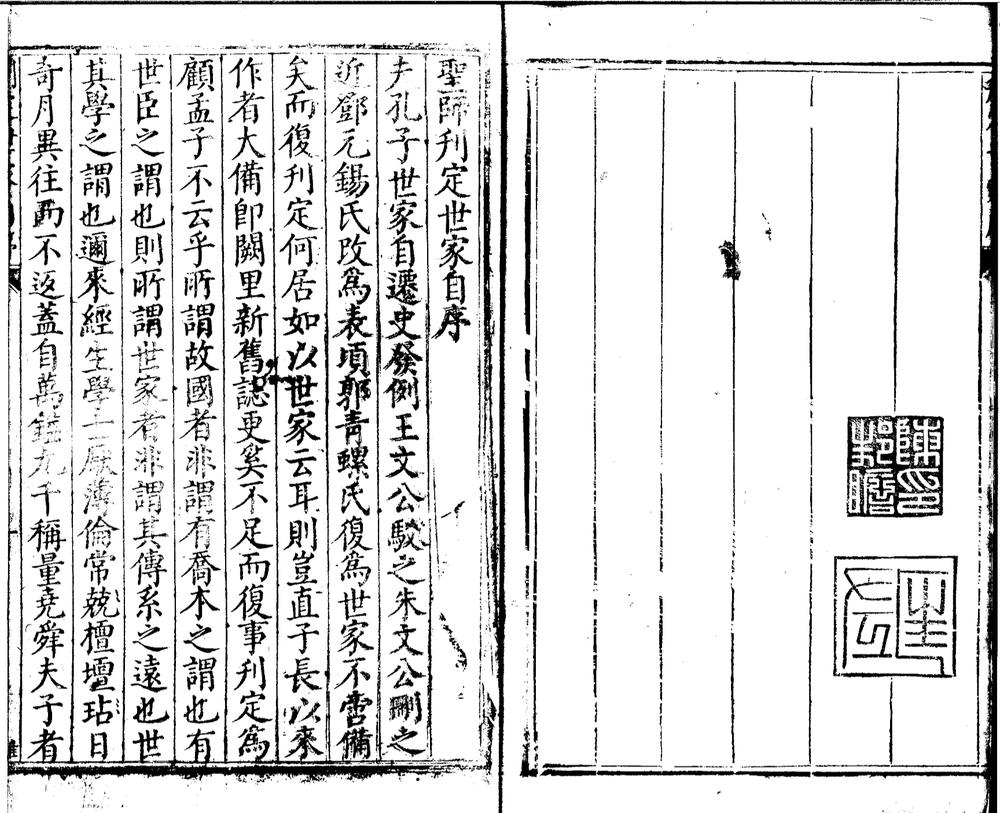 陳印
邦瞻
聖師刋定世家自序
夫孔子世家自遷史發例王文公駁之朱文公刪之
近鄧元錫氏改爲表頃郭青螺氏復爲世家不啻備
矣而復刋定何居如以世家云耳則豈直子長以來
作者大備卽闕里新舊誌更奚不足而復事刋定爲
顧孟子不云乎所謂故國者非謂有喬木之謂也有
世臣之謂也則所謂世家者非謂其傳系之遠也世
其學之謂也邇來經生學士厭薄倫常兢檀壇玷日
奇月異往而不返蓋自萬鎰九千稱量堯舜夫子者